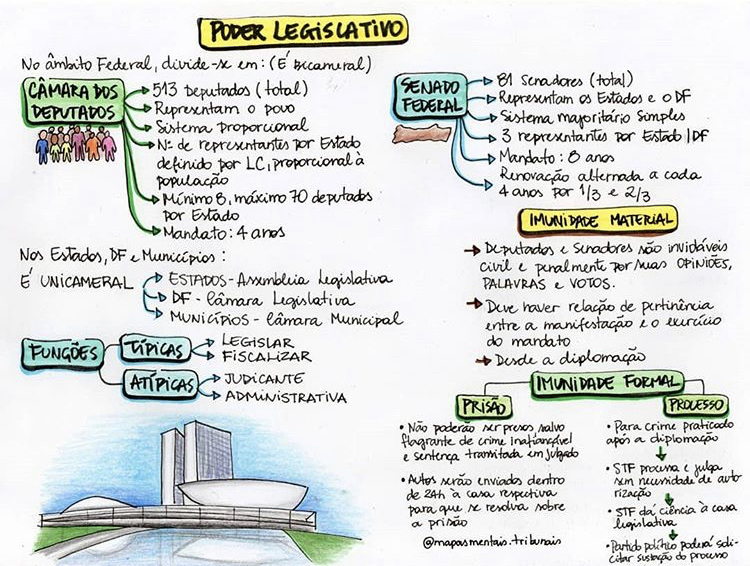 PODER LEGISLATIVO
No âmbito Federal, divide-se em: (É bicameral)
CÂMARA DOS
DEPUTADOS
513 Deputados (total)
Representam o povo
Sistema proporcional
Nº de representantes por Estado
definido por LC, proporcional à
população
Mínimo 8, máximo 70 deputados
por Estado
Mandato: 4 anos
SENADO
FEDERAL
81 Senadores (total)
Representam os Estados e o DF
Sistema majoritário simples
3 representantes por Estado/DF
Mandato: 8 anos
Renovação alternada a cada
4 anos por 1/3 e 2/3
Nos Estados, DF e Municípios:
É UNICAMERAL
ESTADOS - Assembleia Legislativa
DF - Câmara Legislativa
MUNICÍPIOS - Câmara Municipal
FUNÇÕES
TÍPICAS
LEGISLAR
FISCALIZAR
ATÍPICAS
JUDICANTE
ADMINISTRATIVA
IMUNIDADE MATERIAL
Deputados e Senadores são invioláveis
civil e penalmente por suas OPINIÕES,
PALAVRAS e VOTOS.
Deve haver relação de pertinência
entre a manifestação e o exercício
do mandato
Desde a diplomação
IMUNIDADE FORMAL
PRISÃO
• Não poderão ser presos, salvo
flagrante de crime inafiançável
e sentença transitada em julgado
• Autos serão enviados dentro
de 24h à casa respectiva
para que se resolva sobre
a prisão
@mapasmentais.tribunais
PROCESSO
• Para crime praticado
após a diplomação
• STF processa e julga
sem necessidade de auto-
rização
• STF dá ciência à casa
legislativa
• Partido político poderá soli-
citar sustação do processo